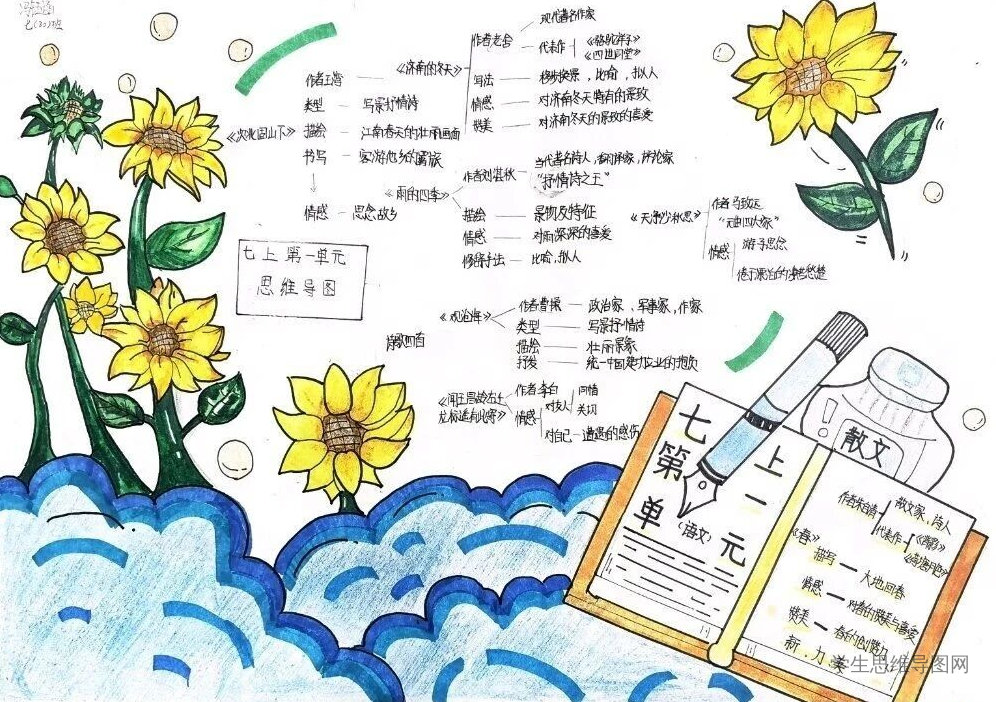 七(30)班
《次北固山下》
作者王湾
类型 — 写景抒情诗
描绘 — 江南春天的壮丽画面
书写 — 客游他乡的羁旅
情感 — 思念故乡
《济南的冬天》
作者老舍
现代著名作家
代表作
《骆驼祥子》
《四世同堂》
写法 — 移步换景，比喻，拟人
情感 — 对济南冬天特有的景致
赞美 — 对济南冬天的景致的喜爱
《雨的四季》
作者刘湛秋
当代著名诗人，翻译家，评论家
“抒情诗之王”
描绘 — 景物及特征
情感 — 对雨深深的喜爱
修辞手法 — 比喻，拟人
《天净沙秋思》
作者马致远
“元曲四大家”
情感
游子思念
七上第一单元
思维导图
诗歌四首
《观沧海》
作者曹操 — 政治家、军事家，作家
类型 — 写景抒情诗
描绘 — 壮丽景象
抒发 — 统一中国建功立业的抱负
《闻王昌龄左迁
龙标遥有此寄》
作者李白
情感
对友人
同情
关切
对自己 — 遭遇的感伤
七上
第一
单元
（语文）
散文
《春》
作者朱自清
散文家，诗人
代表作
《背影》
《荷塘月色》
描写 — 大地回春
情感 — 对春的赞美与喜爱
赞美 — 春的创造力
新，力，美
学生思维导图网